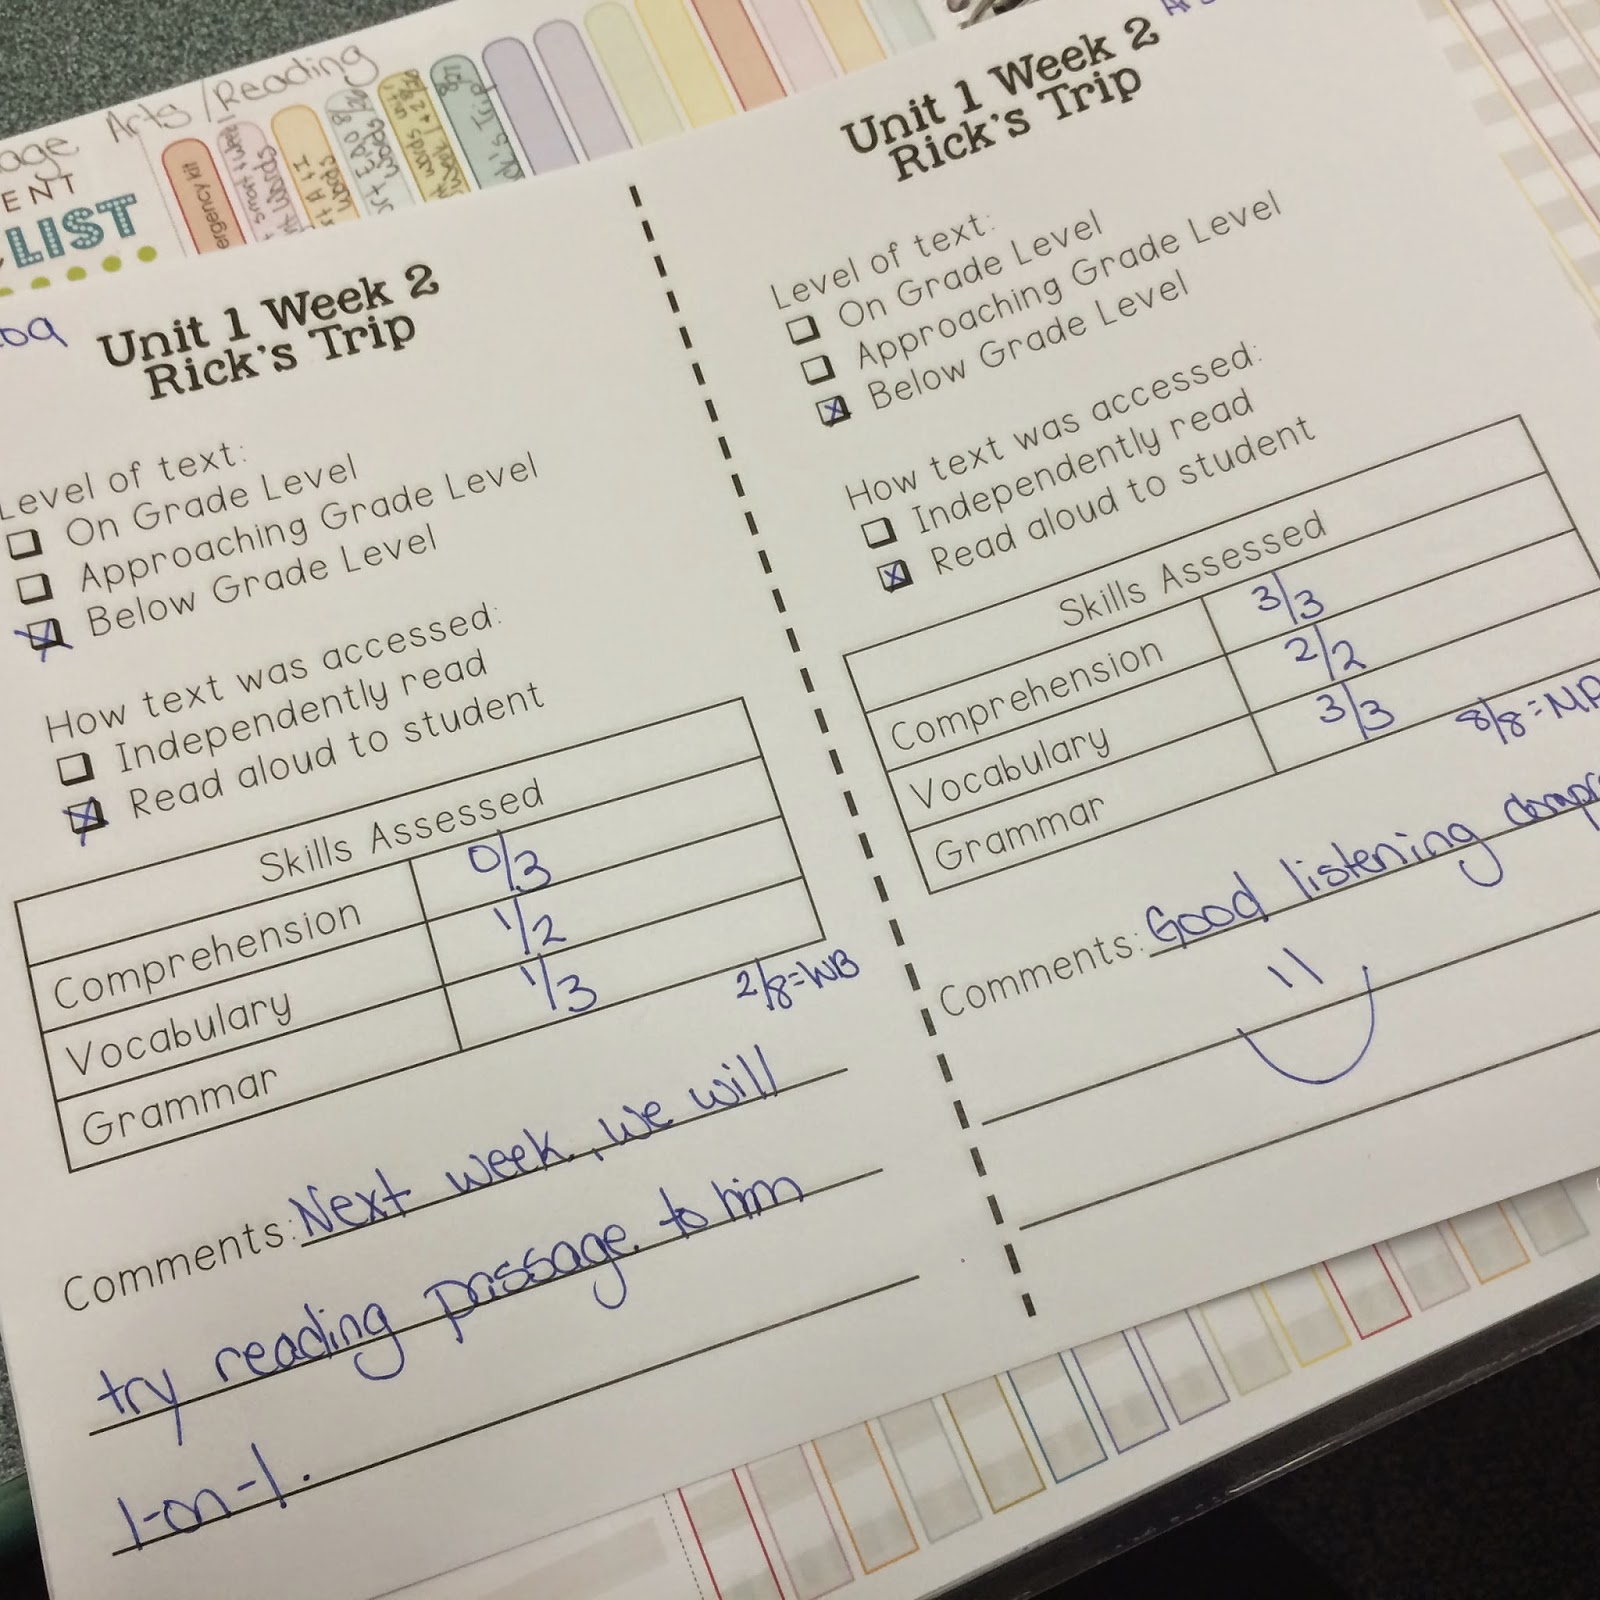 Arts / Reading
ENT
LIST
Unit 1 Week 2
Rick's Trip
Level of text:
On Grade Level
Approaching Grade Level
Below Grade Level
How text was accessed:
Independently read
Read aloud to student
Skills Assessed
Comprehension 0/3
Vocabulary 1/2
Grammar 1/3
2/8=WB
Comments: Next week, we will
try reading passage to him
1-on-1.
Unit 1 Week 2
Rick's Trip
Level of text:
On Grade Level
Approaching Grade Level
Below Grade Level
How text was accessed:
Independently read
Read aloud to student
Skills Assessed
Comprehension 3/3
Vocabulary 2/2
Grammar 3/3
8/8=
Comments: Good listening